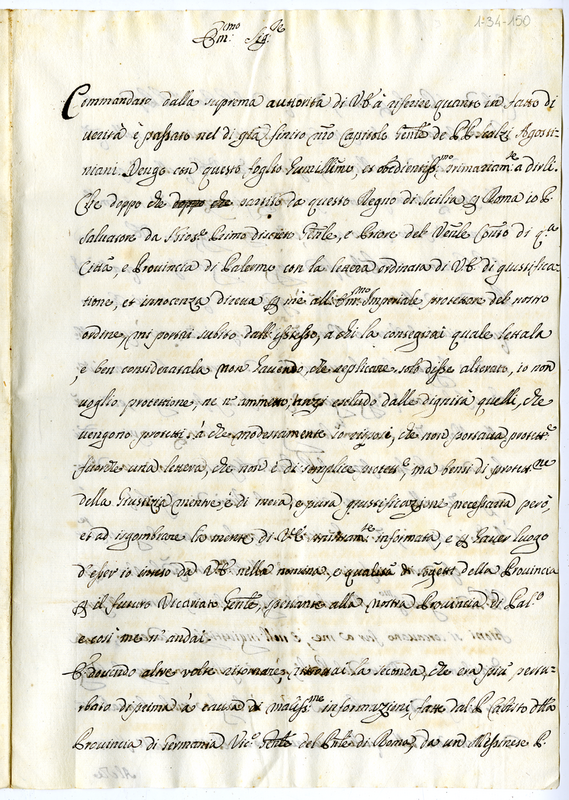 1-34-150
Em:mo Sig:re
Commandato dalla suprema autorità di V.E. à riferire quanto in fatto di
verità è passato nel di già finito Capitolo Gen̄le de PP. Scalzi Agosti-
niani. Vengo con questo foglio humill:mo, et obedientiss:mo primariam:te a dirli
Che doppo che doppo che partito da questo Regno di Sicilia Roma io P.
Salvatore da Primo discreto Gen̄le, e Priore del Ven̄le Con:to di q:ta
Città, e Provincia di Palermo con la lettera ordinata di V.E. di giustifica-
tione, et innocenza diceva me all' Em:mo Imperiale protettore del nostro
ordine, mi portai subito dall' istesso, a chi la consegnai quale lettala
, e ben consideratala non havendo, che replicare solo disse alterato, io non
voglio protettione, ne n' ammetto, anzi escludo dalle dignità quelli, che
vengono protetti, à che modestamente risposi, che non portava protett:e
una lettera, che non è di semplice protett:e, ma bensi di protett:ne
della Giustizia mentre è di mera, e pura giustificazione necessaria però,
et ad isgombrare la mente di V.E. informata, e haver luogo
d'esser io inteso da V.E. nella nomina, e qualità di sogetti della Provincia
il futuro Vicariato Gen̄le, spettante alla nostra Provincia di Pal:o
e così me n' andai.
E dovendo altre volte ritornare, ritornai la seconda, che era più pertur-
bato di prima à causa di maliss:me informazioni, fatte dal P. della
Provincia di Germania Vic:o Gen̄le del di Roma, da un Messinese P.